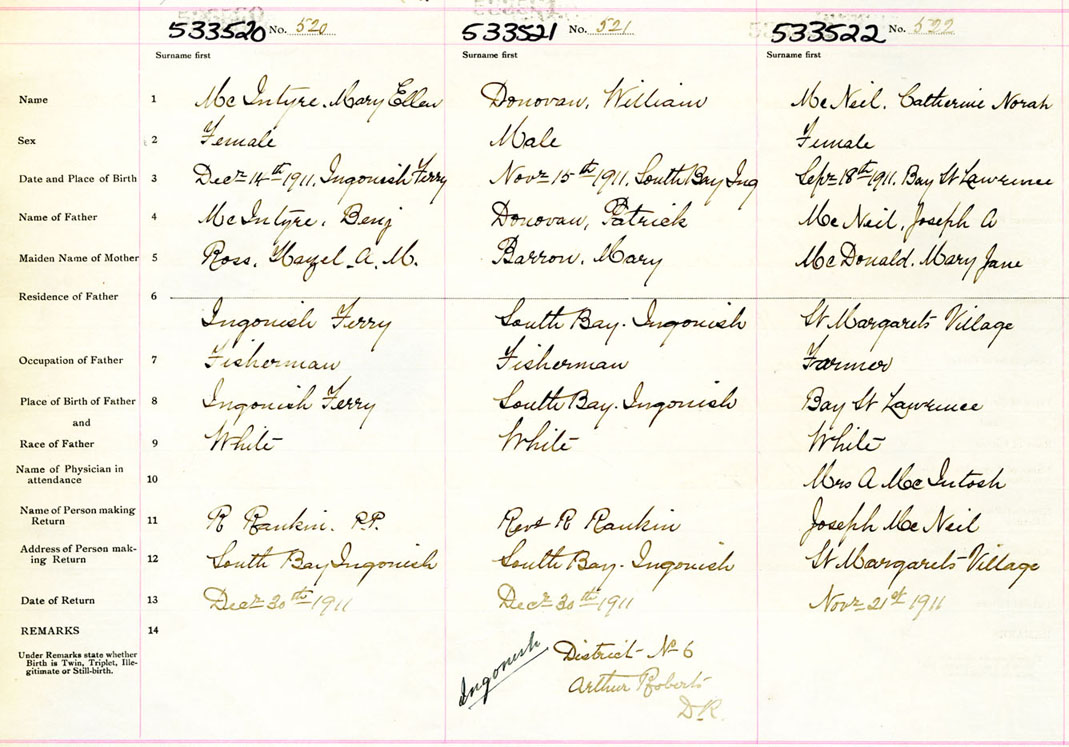 533520 No. 520 533521 No. 521 533522 No. 522
Surname first Surname first Surname first
Name 1 McIntyre, Mary Ellen Donovan, William McNeil, Catherine Norah
Sex 2 Female Male Female
Date and Place of Birth 3 Decr 14th 1911, Ingonish Ferry Novr 15th 1911, South Bay Ing Sepr 18th 1911, Bay St Lawrence
Name of Father 4 McIntyre, Benj Donovan, Patrick McNeil, Joseph A
Maiden Name of Mother 5 Ross, Hazel A. M. Barron, Mary McDonald, Mary Jane
Residence of Father 6
Ingonish Ferry South Bay. Ingonish St Margarets Village
Occupation of Father 7 Fisherman Fisherman Farmer
Place of Birth of Father 8 Ingonish Ferry South Bay. Ingonish Bay St Lawrence
and
Race of Father 9 White White White
Name of Physician in
attendance 10 Mrs A McIntosh
Name of Person making
Return 11 R Rankin. P.P. Revd R Rankin Joseph McNeil
Address of Person mak-
ing Return 12 South Bay Ingonish South Bay. Ingonish St Margarets Village
Date of Return 13 Decr 30th 1911 Decr 30th 1911 Novr 21st 1911
REMARKS 14
Under Remarks state whether
Birth is Twin, Triplet, Ille-
gitimate or Still-birth.
Ingonish
District No 6
Arthur Roberts
D.R.